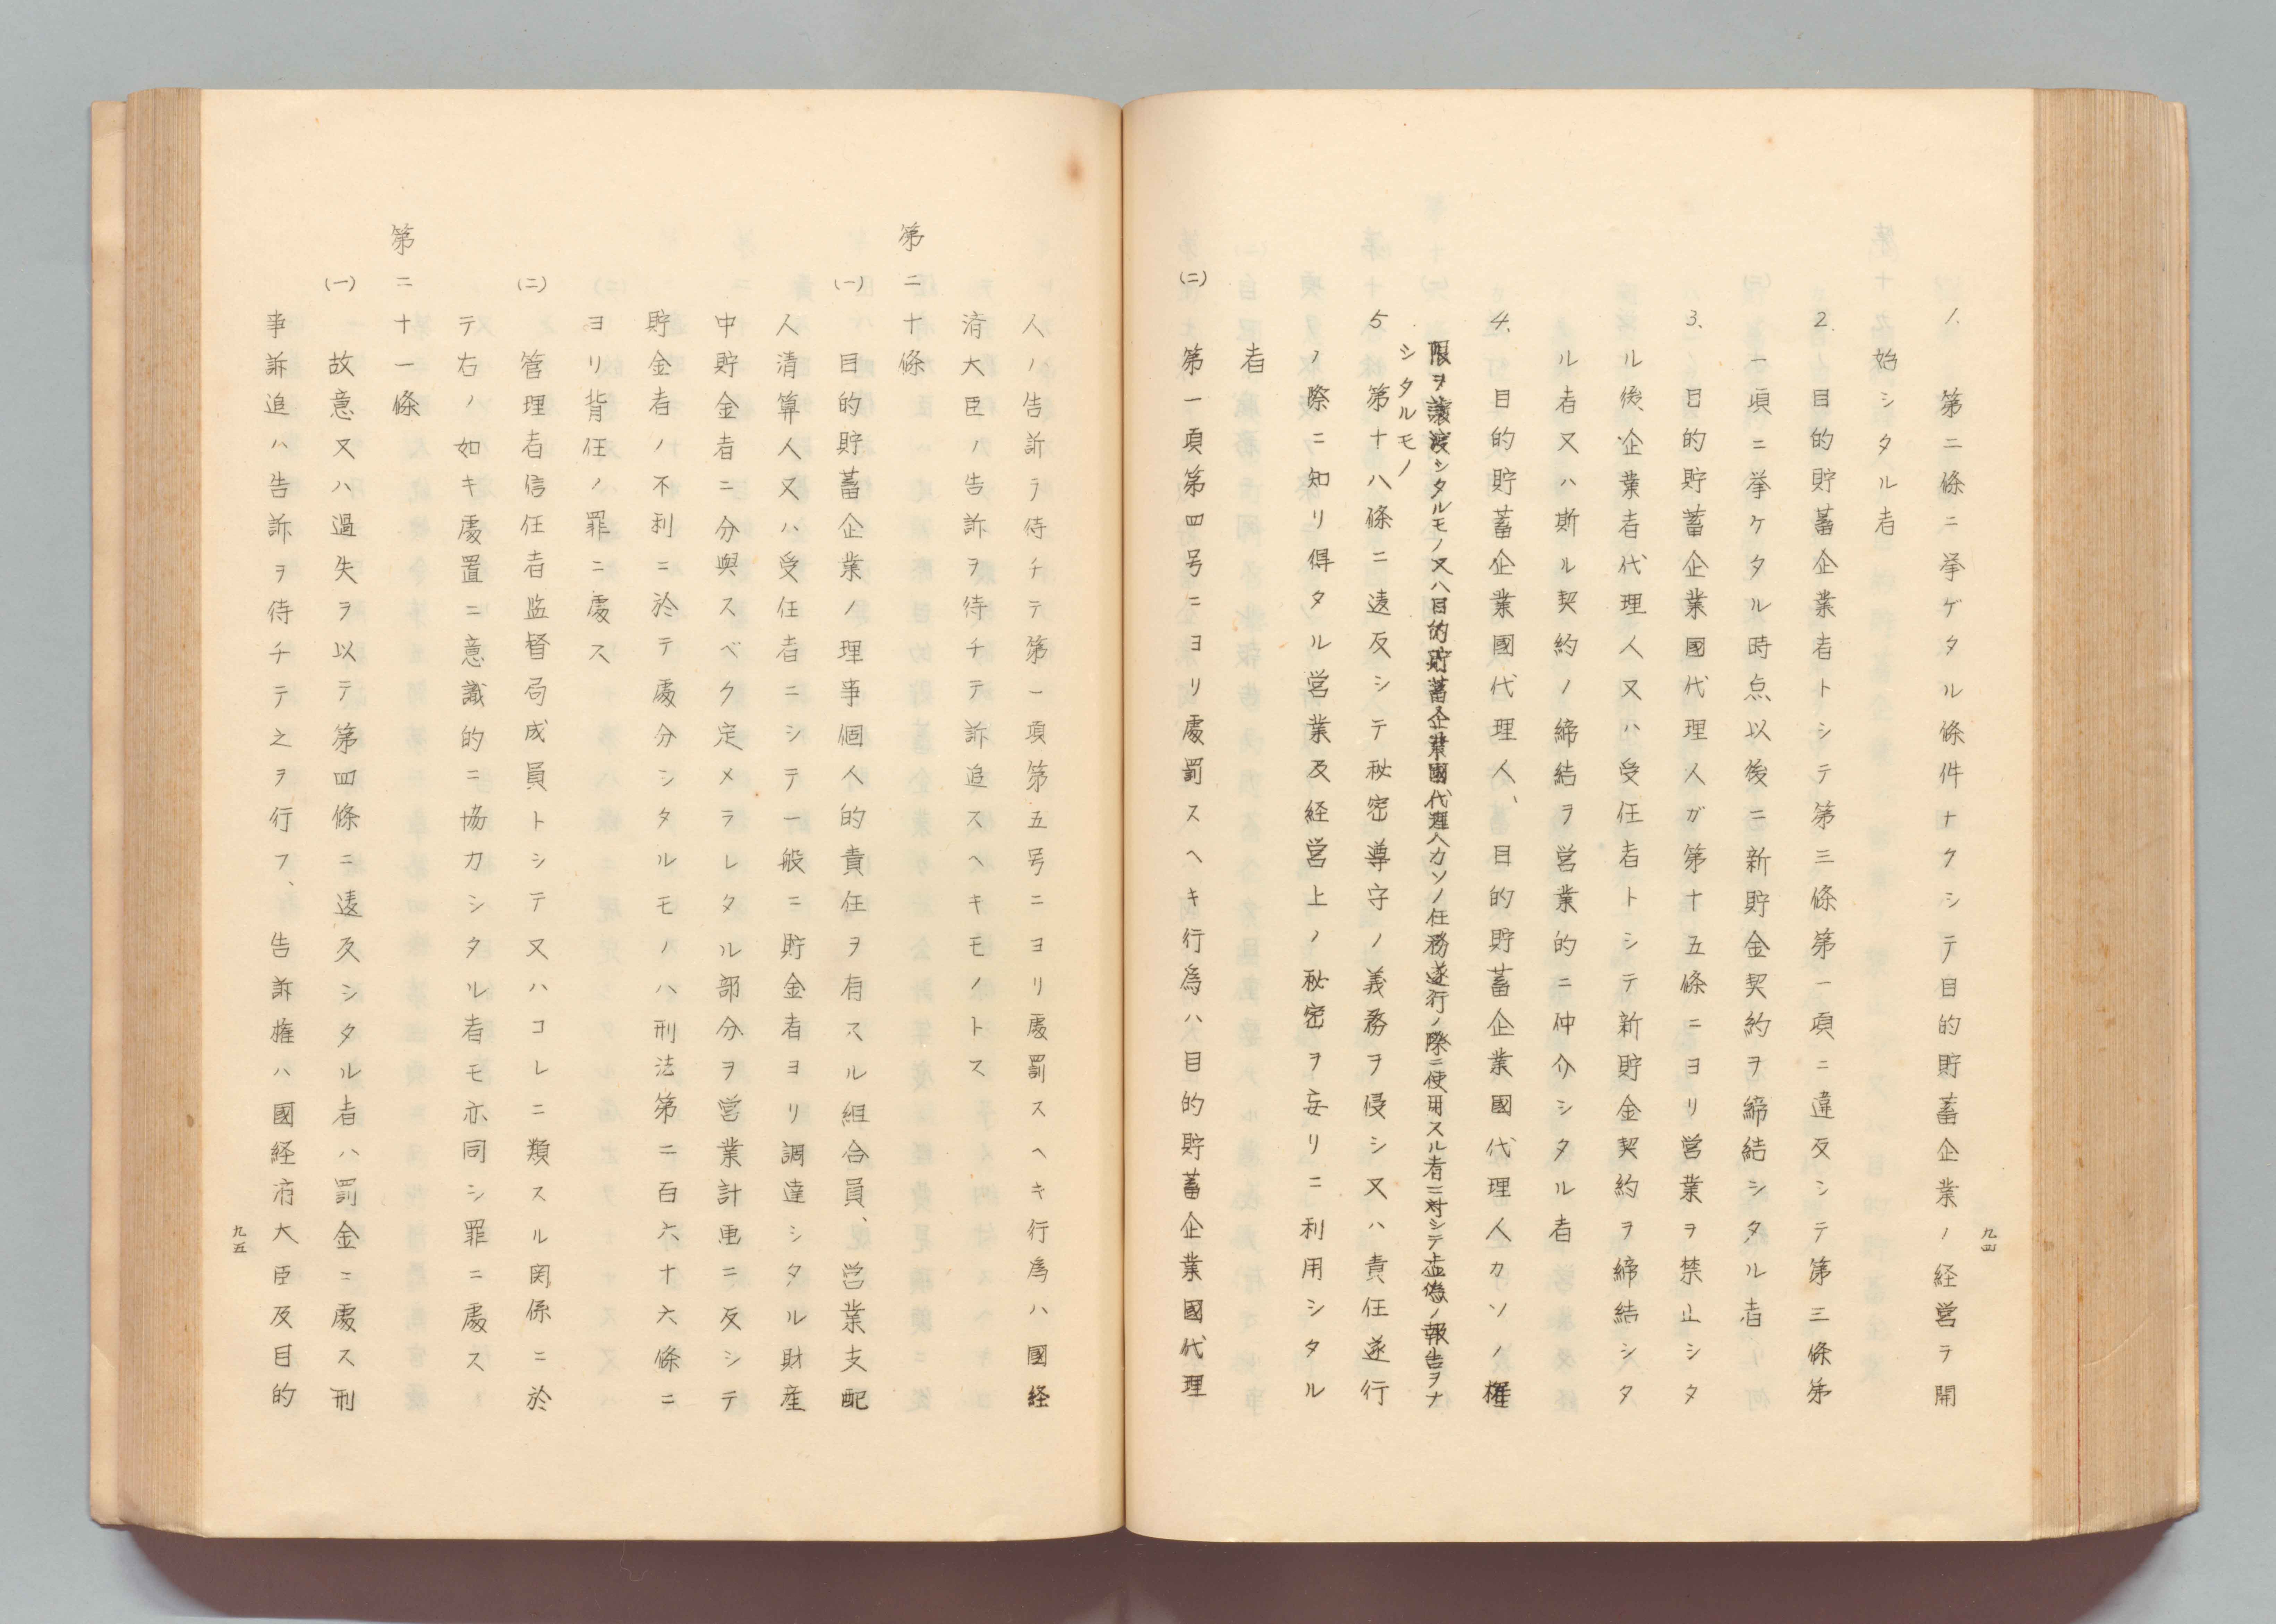 九四
1. 第二條ニ挙ゲタル條件ナクシテ目的貯蓄企業ノ経営ラ開
始シタル者
2. 目的貯蓄企業者トシテ第三條第一項ニ違反シテ第三條第
一項ニ挙ケタル時点以後ニ新貯金契約ヲ締結シタル者
3、目的貯蓄企業國代理人ガ第十五條ニヨリ営業ヲ禁止シタ
ル後企業者代理人又ハ受任者トシテ新貯金契約ヲ締結シタ
ル者又ハ斯ル契約ノ締結ヲ営業的ニ仲介シタル者
4. 目的貯蓄企業國代理人、目的貯蓄企業國代理人カソノ権
限ヲ譲渡シタルモノ又ハ目的貯蓄企業國代理人カソノ任務遂行ノ際ニ使用スル者ニ対シテ虚偽ノ報告ヲナ
シタルモノ
5 第十八條ニ違反シテ秘密尊守ノ義務ヲ侵シ又ハ責任遂行
ノ際ニ知リ得タル営業及経営上ノ秘密ヲ妄リニ利用シタル
者
(二) 第一項第四号ニヨリ處罰スヘキ行為ハ目的貯蓄企業國代理
人ノ告訴ラ待チテ第一項第五号ニヨリ處罰スヘキ行為ハ國経
済大臣ノ告訴ヲ待チテ訴追スヘキモノトス
第二十條
(一) 目的貯蓄企業ノ理事個人的責任ヲ有スル組合員、営業支配
人清算人又ハ受任者ニシテ一般ニ貯金者ヨリ調達シタル財産
中貯金者ニ分與スベク定メラレタル部分ヲ営業計画ニ反シテ
貯金者ノ不利ニ於テ處分シタルモノハ刑法第二百六十六條ニ
ヨリ背任ノ罪ニ處ス
(二) 管理者信任者監督局成員トシテ又ハコレニ類スル関係ニ於
テ右ノ如キ處置ニ意識的ニ協力シタル者モ亦同シ罪ニ處ス
第二十一條
(一) 故意又ハ過失ヲ以テ第四條ニ違反シタル者ハ罰金ニ處ス刑
事訴追ハ告訴ヲ待チテ之ヲ行フ、告訴権ハ國経済大臣及目的
九五